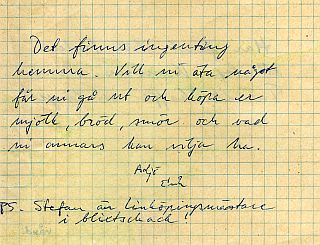 Det finns ingenting
hemma. Vill ni äta något
får ni gå ut och köpa er
mjölk, bröd, smör och vad
ni annars kan vilja ha.
Adjö
PS. Stefan är Linköpingsmästare
i blixtschack!